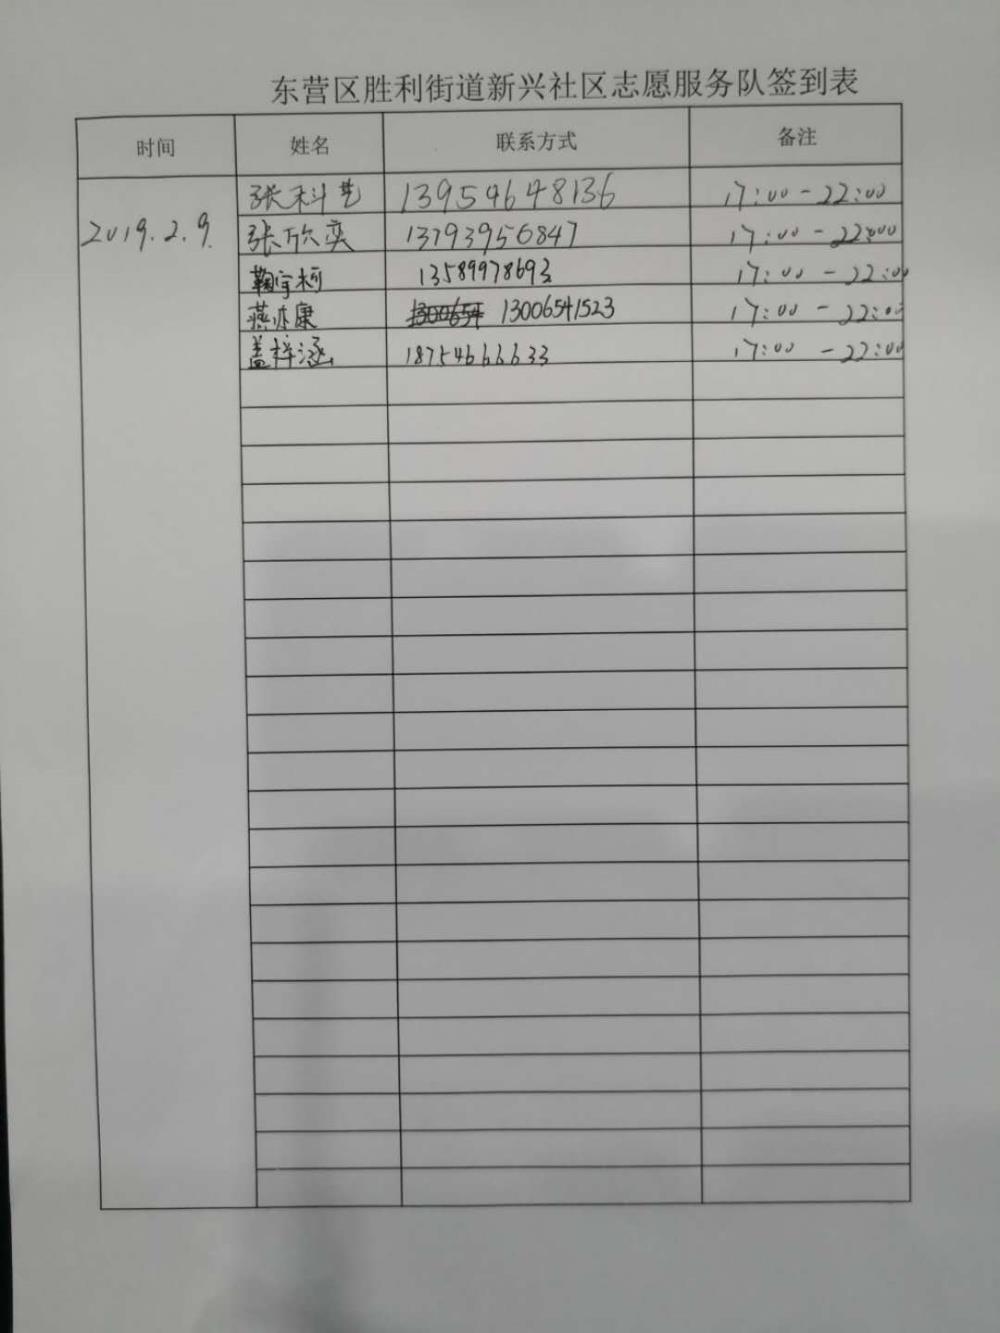 东营区胜利街道新兴社区志愿服务队签到表
时间 姓名 联系方式 备注
张科艺 13954648136 17:00-22:00
2019.2.9. 张欣奕 13793956847 17:00-22:00
鞠宇柯 13589978693 17:00-22:00
燕亦康 1300654 13006541523 17:00-22:00
盖梓涵 18754666633 17:00-22:00